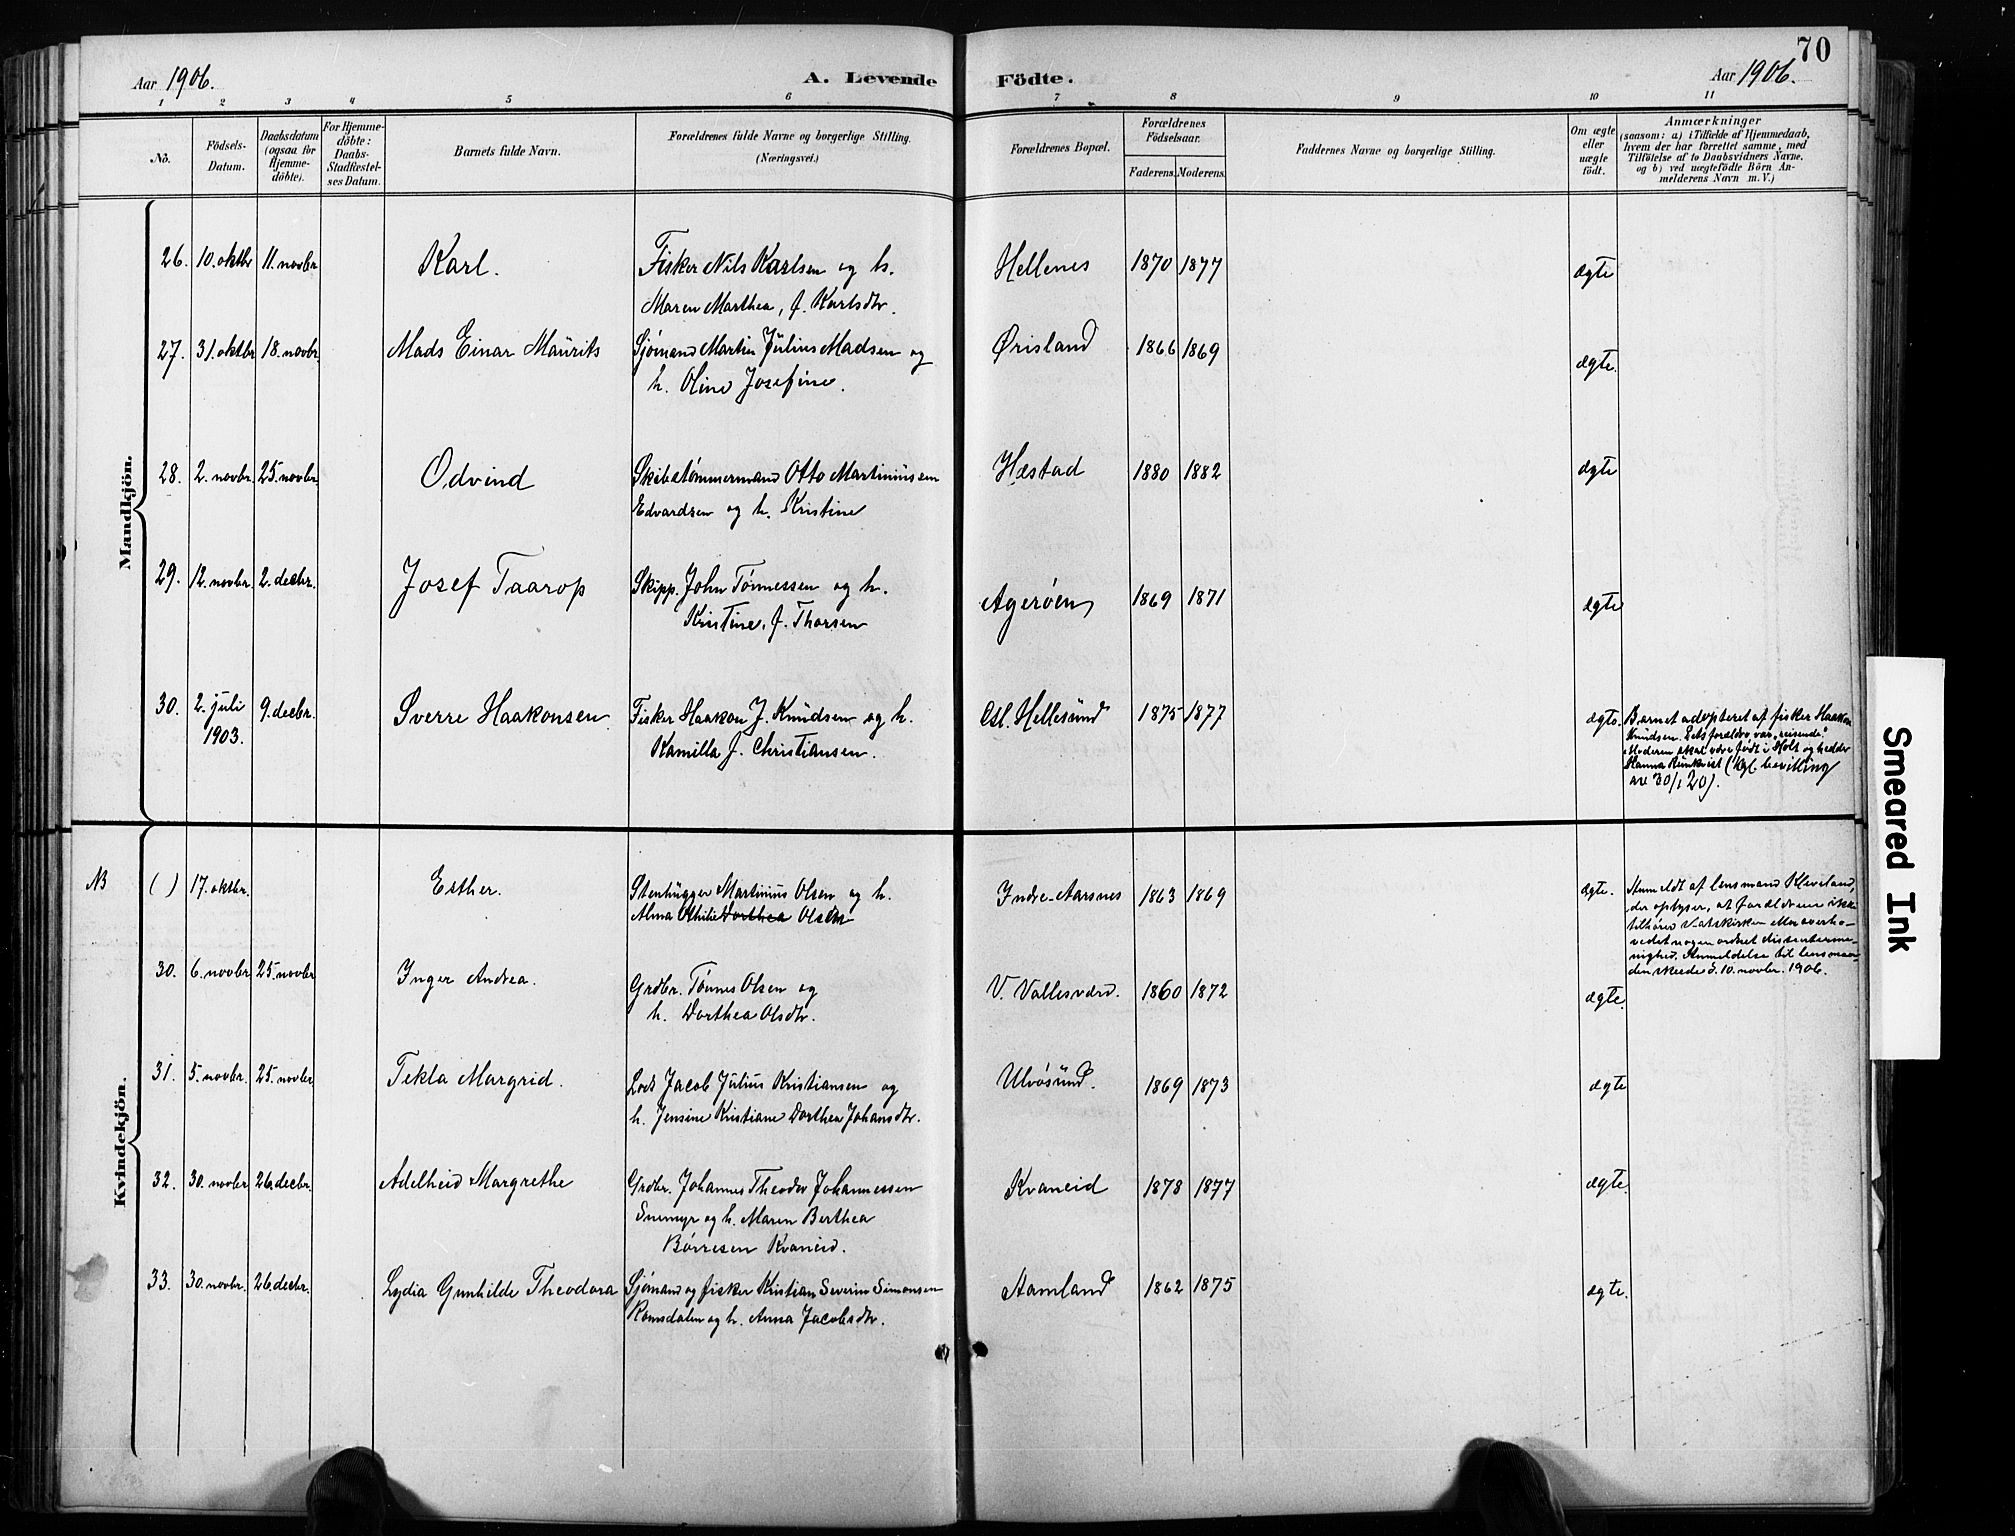 70
Aar 1906.
A. Levende
Födte.
Aar 1906.
1 2 3 4 5 6 7 8 9 10 11
No.
Födsels-
Datum.
Daabsdatum
(ogsaa for
Hjemme-
döbte).
For Hjemme-
döbte:
Daabs-
Stadfæstel-
ses Datum.
Barnets fulde Navn.
Forældrenes fulde Navne og borgerlige Stilling.
(Næringsvei.)
Forældrenes Bopæl.
Forældrenes
Födselsaar.
Faderens. Moderens.
Faddernes Navne og borgerlige Stilling.
Om ægte
eller
uægte
födt.
Anmærkninger
(saasom: a) i Tilfælde af Hjemmedaab,
hvem der har forrettet samme, med
Tilföielse af to Daabsvidners Navne,
og b) ved uægtefödte Börn An-
melderens Navn m. V.)
Mandkjön.
26. 10. oktbr 11. novbr. Karl. Fisker Nils Karlsen og h. Hellenes 1870 1877 ægte
Maren Marthea, f. Karlsdtr.
27. 31. oktbr 18. novbr. Mads Einar Maurits Sjømand Martin Julius Madsen og Ørisland 1866 1869 ægte.
h. Oline Josefine.
28. 2. novbr. 25. novbr. Odvind Skibstømmermand Otto Martiniussen Hæstad 1880 1882 ægte
Edvardsen og h. Kristine
29. 12. novbr. 2. decbr. Josef Taarop Skipp. John Tönnessen og h. Ageröen 1869 1871 ægte
Kristine, f. Thorsen
30. 2. juli 9. decbr. Sverre Haakonsen Fisker Haakon J. Knudsen og h. Hellesund 1875 1877 ægte.
1903. Kamilla f. Christiansen.
Barnet adopteret af fisker Haakon
Knudsen. Dets forældre var "reisende".
Moderen skal være født i Holt og hedder
Hanna (Kgl. bevilling
av 30/1 20).
Kvindekjön.
NB ( ) 17. oktbr. Esther. Stenhugger Martinius Olsen og h. Indre-Aarsnes 1863 1869 ægte.
Alma Othilie Dorthea Olsen
Anmeldt af lensmand Kleveland,
der oplyser, at forældrene ikke
tilhører Statskirken eller overho-
vedet nogen ordnet dissenterme-
nighed. Anmeldelse til lensman-
den skeede d. 10. novbr. 1906.
30. 6. novbr 25. novbr Inger Andrea. Grdbr. Tönnes Olsen og V. Vallesværd. 1860 1872 ægte.
h. Dorthea Olsdtr.
31. 5. novbr. 25. novbr Tekla Margrid. Lods Jacob Julius Kristiansen og Ulvösund. 1869 1873 ægte
h. Jensine Kristiane Dorthea Johansdtr.
32. 30. novbr 26. decbr. Adelheid Margrethe Grdbr. Johannes Theodor Johannessen Kvaneid 1878 1877 ægte.
Snemyr og h. Maren Berthea
Börresen Kvaneid.
33. 30. novbr. 26. decbr. Lydia Gunhilde Theodora Sjømand og fisker Kristian Severin Simonsen Aamland 1862 1875 ægte.
Romsdalen og h. Anna Jacobsdtr.
Smeared Ink